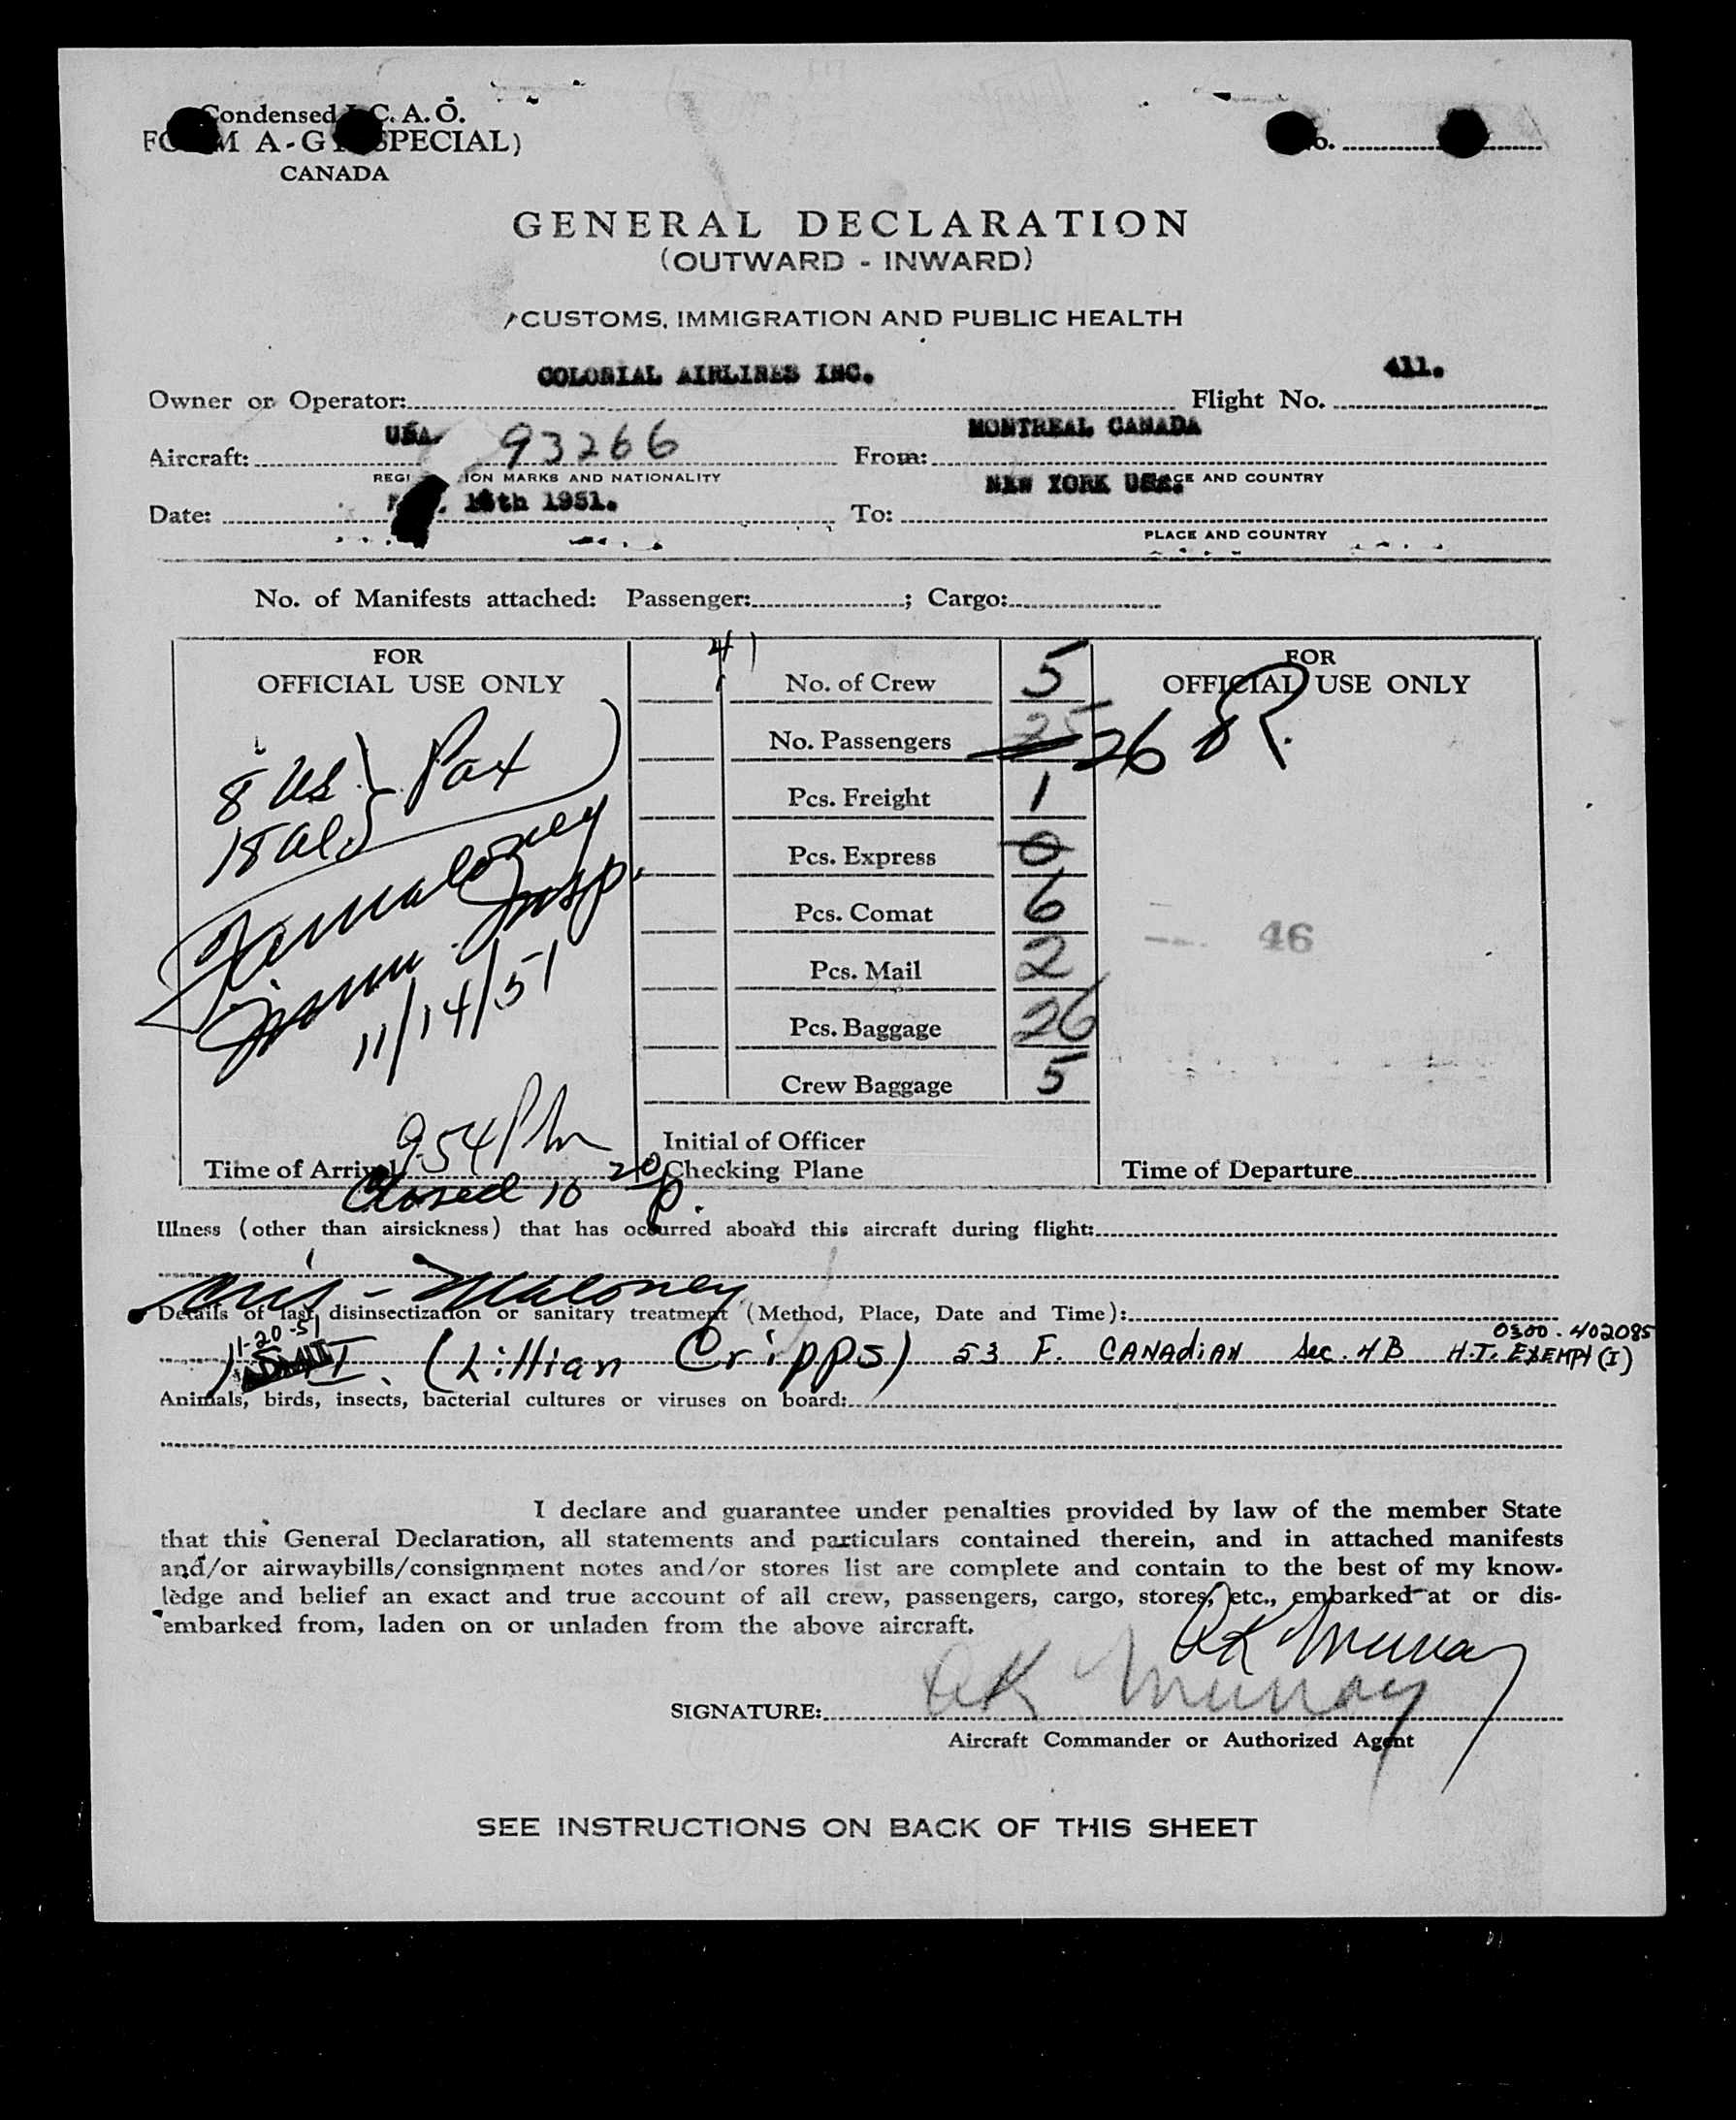 Condensed I. C. A. O.
FORM A-G (SPECIAL)
CANADA
No.
GENERAL DECLARATION
(OUTWARD - INWARD)
CUSTOMS, IMMIGRATION AND PUBLIC HEALTH
Owner or Operator: COLONIAL AIRLINES INC. Flight No. 411.
Aircraft: USA. 93266 From: MONTREAL CANADA
REGISTRATION MARKS AND NATIONALITY PLACE AND COUNTRY
Date: 14th 1951. To: NEW YORK USA.
PLACE AND COUNTRY
No. of Manifests attached: Passenger: ; Cargo:
FOR
OFFICIAL USE ONLY
8 US } Pax
18 al.
Maloney
Imm. Insp.
11/14/51
Time of Arrival 954 Pm
Closed 10 20 p.
41
No. of Crew 5
No. Passengers 25 26
Pcs. Freight 1
Pcs. Express 0
Pcs. Comat 6
Pcs. Mail 2
Pcs. Baggage 26
Crew Baggage 5
Initial of Officer
Checking Plane
FOR
OFFICIAL USE ONLY
46
Time of Departure
Illness (other than airsickness) that has occurred aboard this aircraft during flight:
Maloney
Details of last disinsectization or sanitary treatment (Method, Place, Date and Time):
11-20-51 0300-402085
I. (Lillian Cripps) 53 F. CANADIAN Sec. 4B H.T. EXEMPT (I)
Animals, birds, insects, bacterial cultures or viruses on board:
I declare and guarantee under penalties provided by law of the member State
that this General Declaration, all statements and particulars contained therein, and in attached manifests
and/or airwaybills/consignment notes and/or stores list are complete and contain to the best of my know-
ledge and belief an exact and true account of all crew, passengers, cargo, stores, etc., embarked at or dis-
embarked from, laden on or unladen from the above aircraft.
RK Murray
SIGNATURE: RK Murray
Aircraft Commander or Authorized Agent
SEE INSTRUCTIONS ON BACK OF THIS SHEET